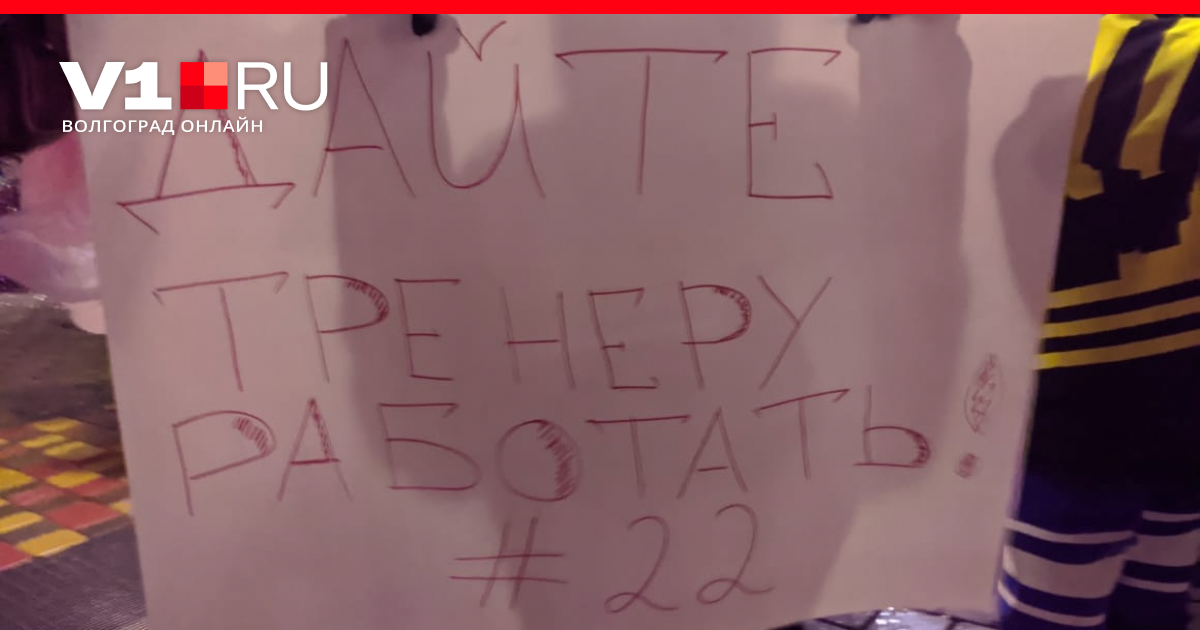 V1 RU
ВОЛГОГРАД ОНЛАЙН
ДАЙТЕ
ТРЕНЕРУ
РАБОТАТЬ!
#22